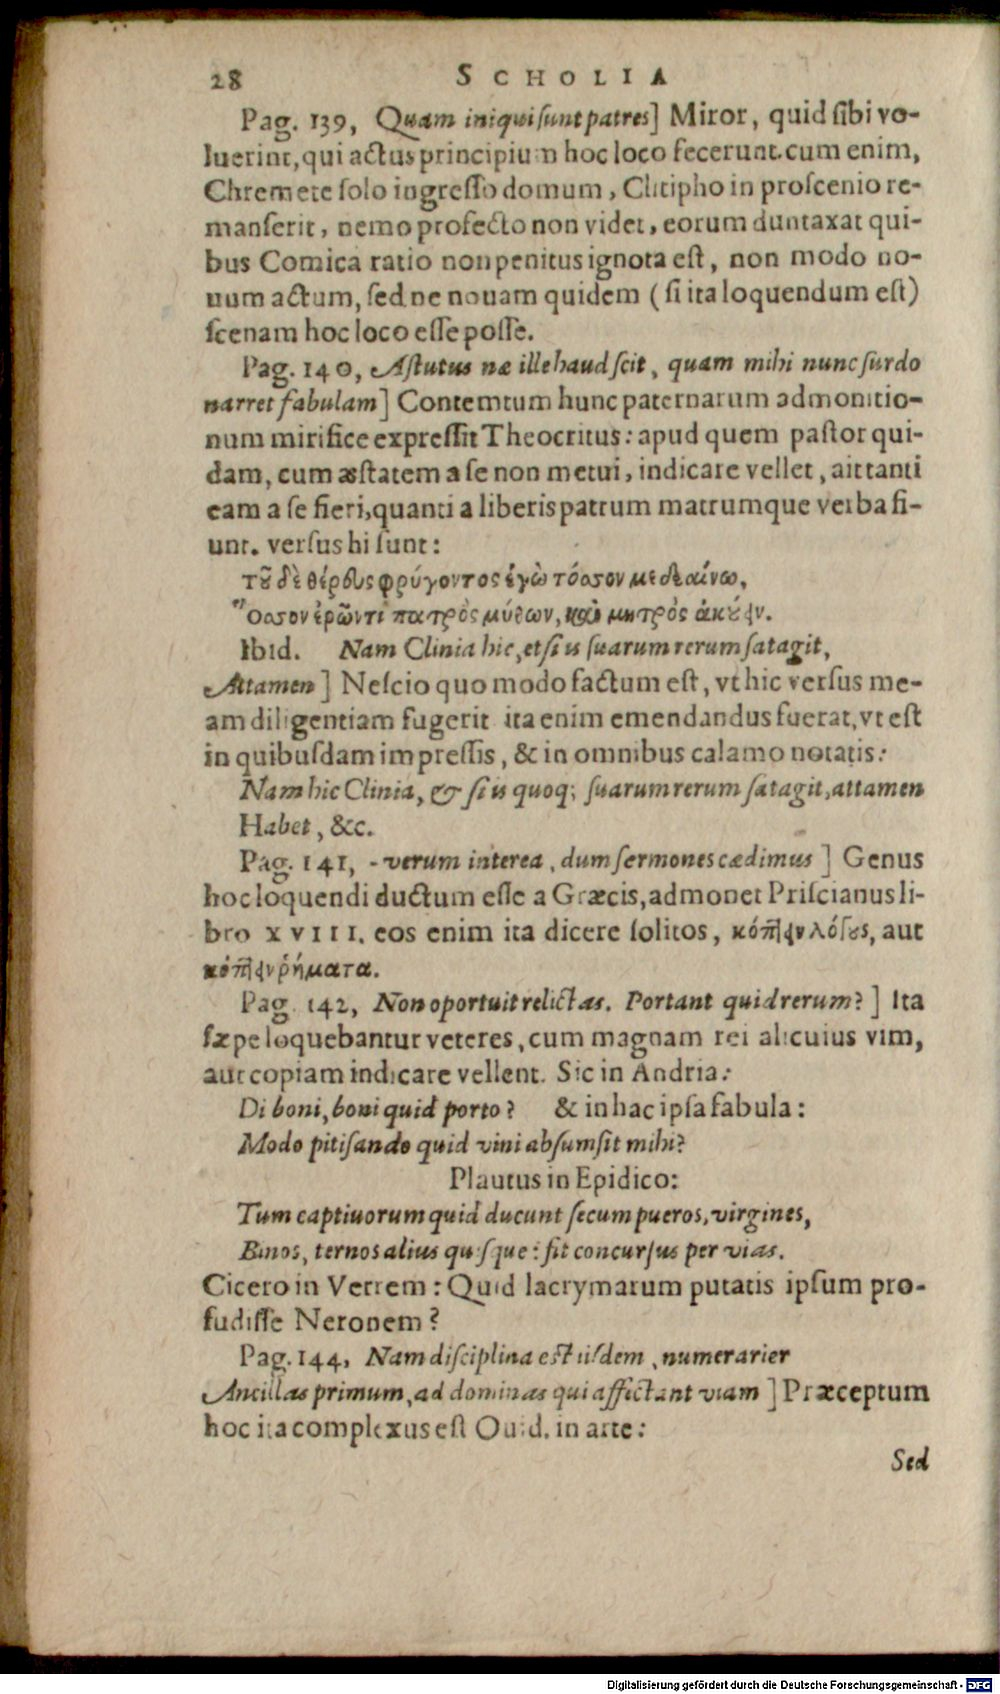 28 SCHOLIA
Pag. 139, Quam iniqui ſunt patres] Miror, quid ſibi vo-
luerint, qui actus principium hoc loco fecerunt. cum enim,
Chremete ſolo ingreſſo domum, Clitipho in proſcenio re-
manſerit, nemo profecto non videt, eorum duntaxat qui-
bus Comica ratio non penitus ignota eſt, non modo no-
uum actum, ſed ne nouam quidem (ſi ita loquendum eſt)
ſcenam hoc loco eſſe poſſe.
Pag. 140, Aſtutus næ ille haud ſcit, quam mihi nunc ſurdo
narret fabulam] Contemtum hunc paternarum admonitio-
num mirifice expreſſit Theocritus: apud quem paſtor qui-
dam, cum æſtatem a ſe non metui, indicare vellet, ait tanti
eam a ſe fieri, quanti a liberis patrum matrumque verba fi-
unt. verſus hi ſunt:
τοῦ δὲ θέρους φρύγοντος ἐγὼ τόσσον μελεδαίνω,
Ὅσσον ἐρῶντι πατρὸς μύθων, καὶ μητρὸς ἀκούειν.
Ibid. Nam Clinia hic, etſi is ſuarum rerum ſatagit,
Attamen] Neſcio quo modo factum eſt, vt hic verſus me-
am diligentiam fugerit ita enim emendandus fuerat, vt eſt
in quibuſdam impreſſis, & in omnibus calamo notatis:
Nam hic Clinia, & ſi is quoq; ſuarum rerum ſatagit, attamen
Habet, &c.
Pag. 141, -verum interea, dum ſermones cædimus] Genus
hoc loquendi ductum eſſe a Græcis, admonet Priſcianus li-
bro XVIII. eos enim ita dicere ſolitos, κόπτειν λόγους, aut
κόπτειν ῥήματα.
Pag. 142, Non oportuit relictas. Portant quid rerum?] Ita
ſæpe loquebantur veteres, cum magnam rei alicuius vim,
aut copiam indicare vellent. Sic in Andria:
Di boni, boni quid porto? & in hac ipſa fabula:
Modo pitiſando quid vini abſumſit mihi?
Plautus in Epidico:
Tum captiuorum quid ducunt ſecum pueros, virgines,
Binos, ternos alius quiſque: fit concurſus per vias.
Cicero in Verrem: Quid lacrymarum putatis ipſum pro-
fudiſſe Neronem?
Pag. 144, Nam diſciplina eſt iiſdem, numerarier
Ancillas primum, ad dominas qui affectant viam] Præceptum
hoc ita complexus eſt Ouid. in arte:
Sed
Digitalisierung gefördert durch die Deutsche Forschungsgemeinschaft - DFG